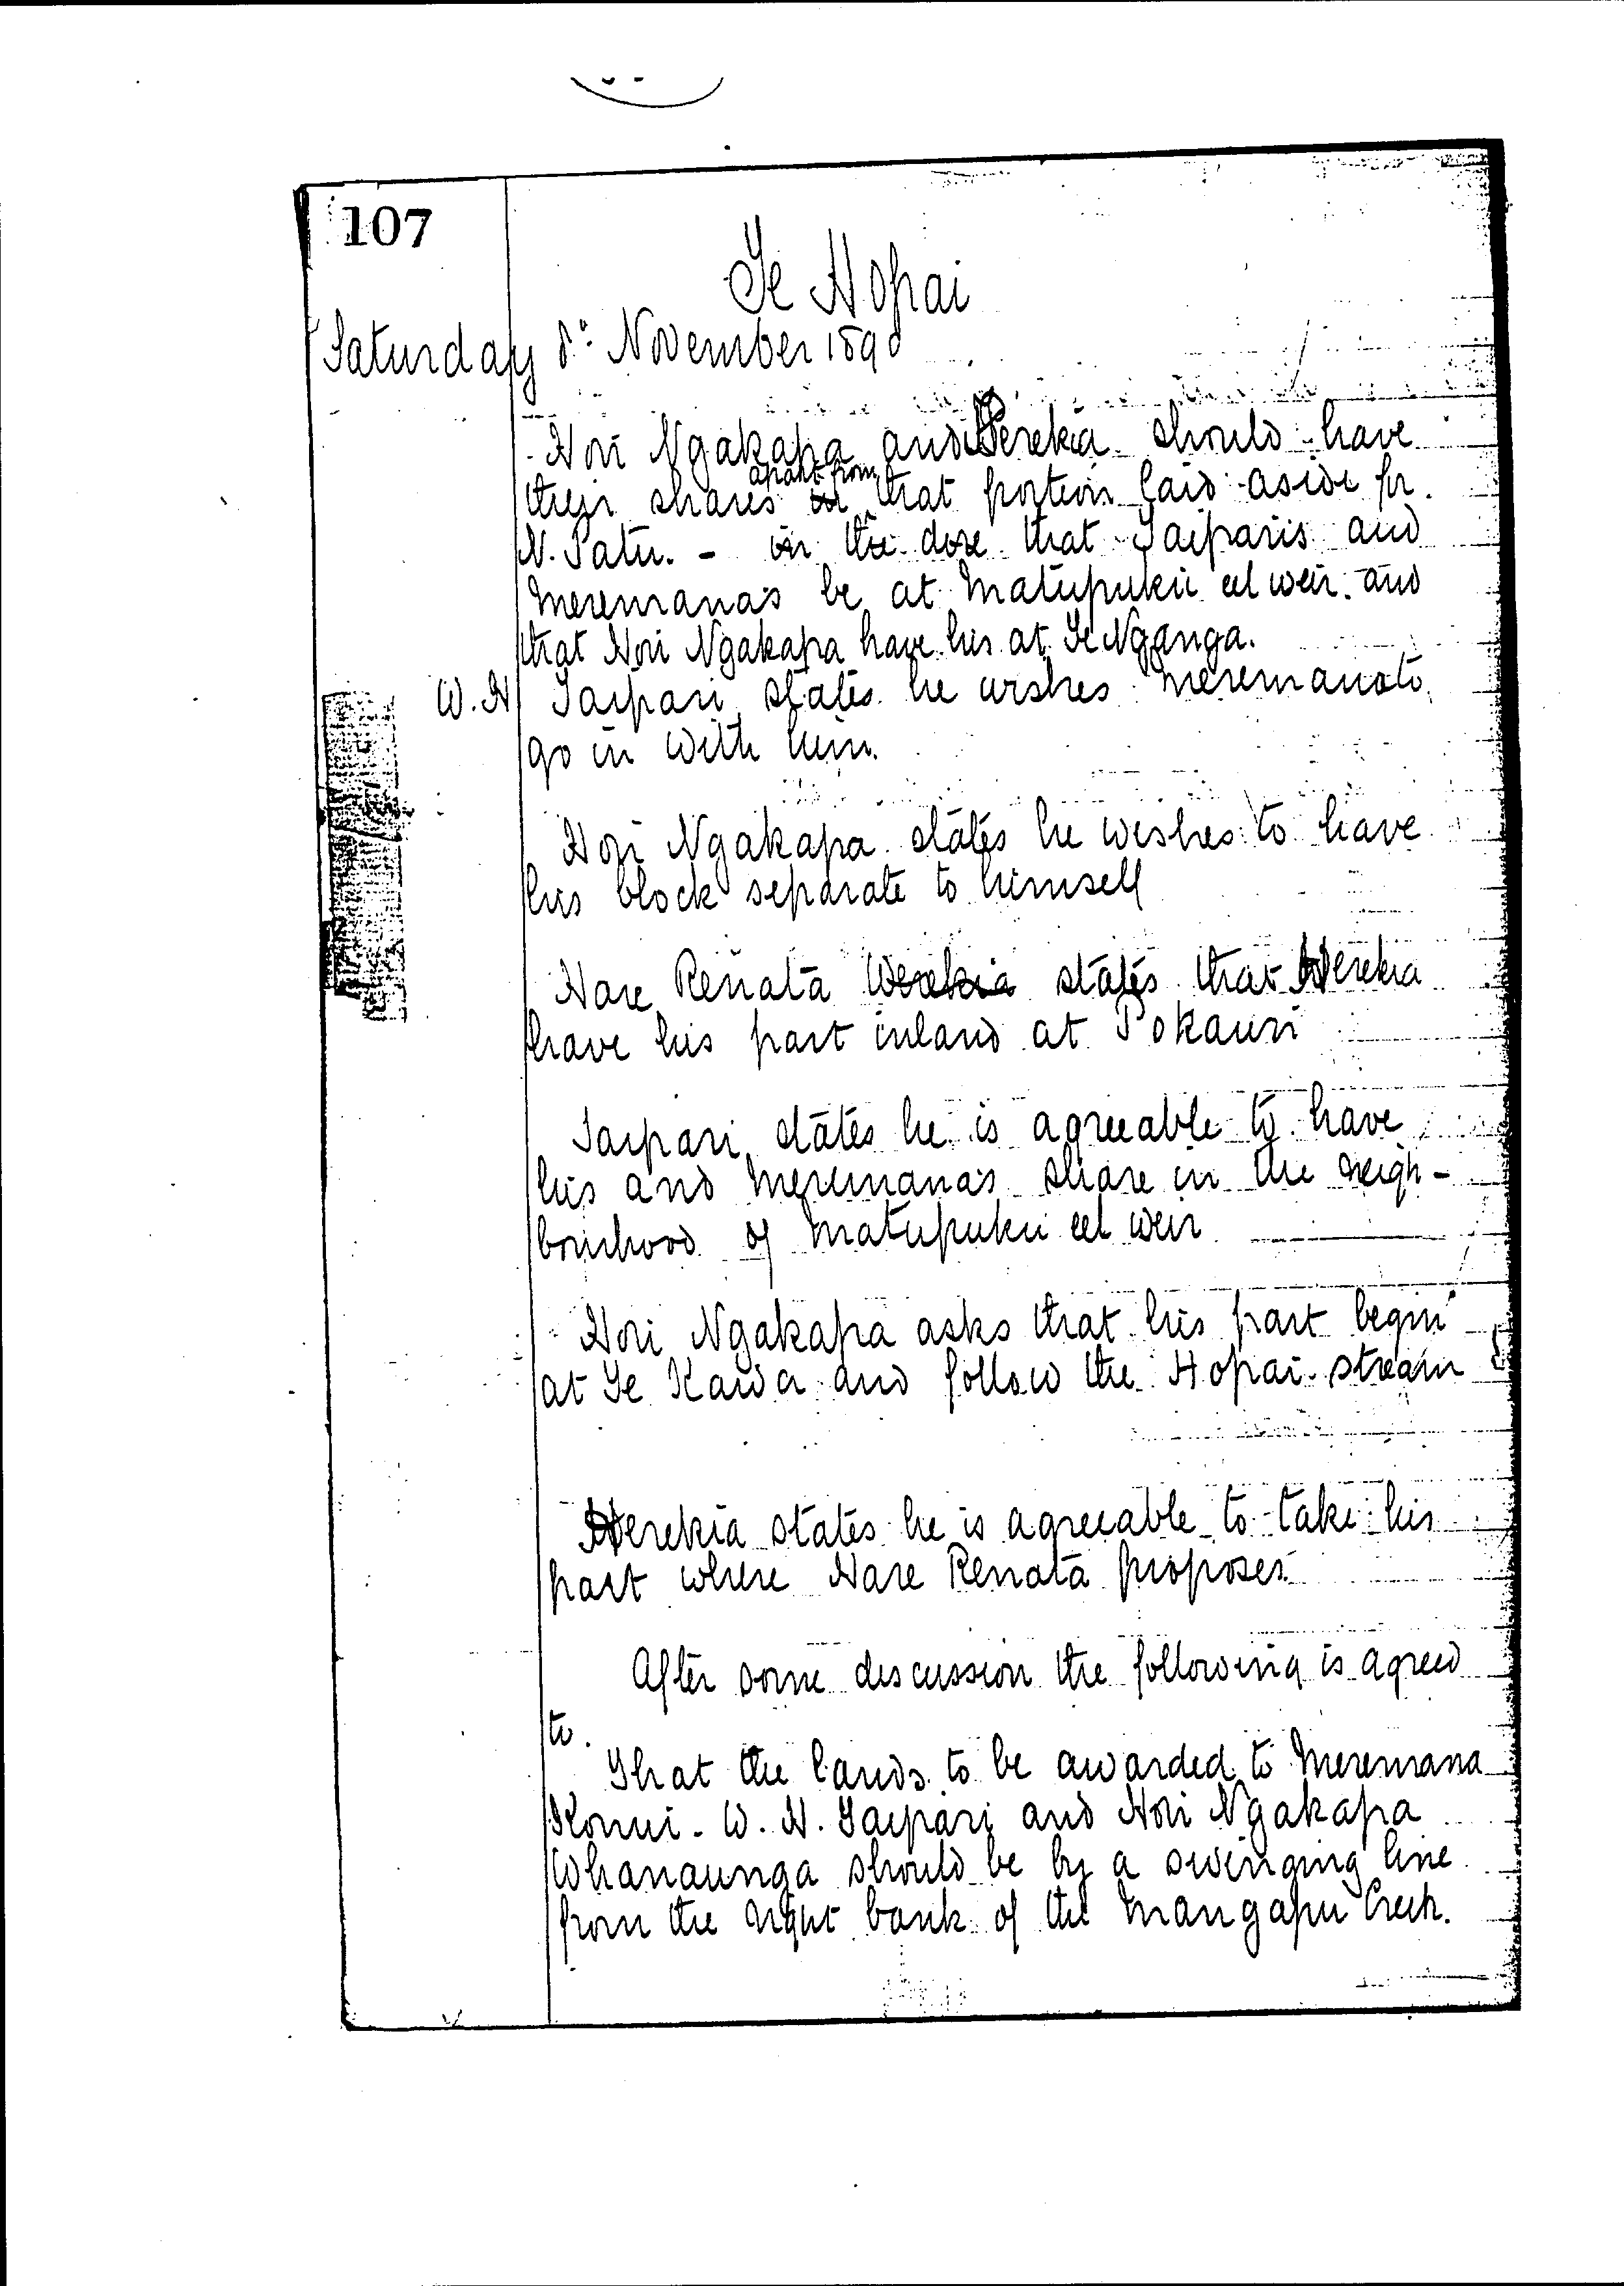 107
Te Hopai
Saturday 8th November 1890
Hori Ngakapa and Herekia should have
their shares apart from that portion laid aside for
N. Patu. - in the that Taiparis and
Meremana's be at Matupukii eel weir. and
that Hori Ngakapa have his at Te Nganga.
W. H Taipari states he wishes Meremana to
go in with him.
Hori Ngakapa states he wishes to have
his block separate to himself
Hare Renata Werekia states that Herekia
have his part inland at Pokauri
Taipari states he is agreeable to have
his and Meremana's share in the neigh-
bourhood of Matupukii eel weir
Hori Ngakapa asks that his part begin
at Te Kawa and follow the Hopai stream
Herekia states he is agreeable to take his
part where Hare Renata proposes
After some discussion the following is agreed
to.
That the lands to be awarded to Meremana
Konui - W. H. Taipari and Hori Ngakapa
Whanaunga should be by a swinging line
from the right bank of the Mangapu Creek.